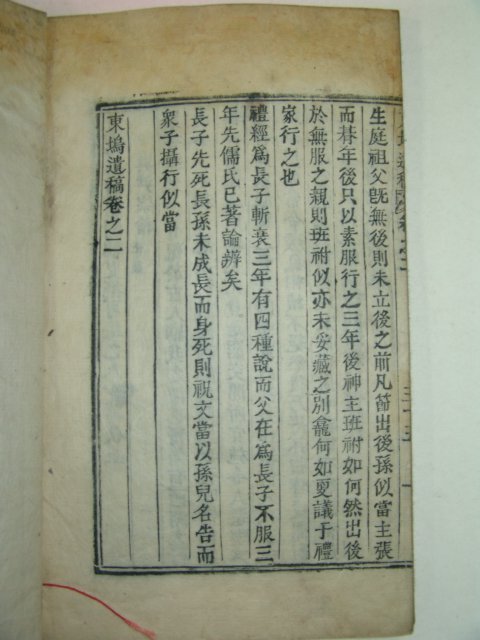 生庭祖父旣無後則未立後之前凡節出後孫似當主張
而朞年後只以素服行之三年後神主班祔如何然出後
於無服之親則班祔似亦未妥藏之別龕何如更議于禮
家行之也
禮經爲長子斬衰三年有四種說而父在爲長子不服三
年先儒氏已著論辨矣
長子先死長孫未成長而身死則祝文當以孫兒名告而
衆子攝行似當
東塢遺稿卷之二